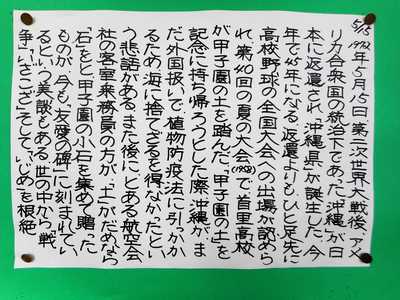 5/15 1972年5月15日、第二次世界大戦後、アメ
リカ合衆国の統治下であった「沖縄」が日
本に返還され「沖縄県」が誕生した。今
年で45年になる。返還よりもひと足先に
高校野球の全国大会への出場が認めら
れ、第40回の夏の大会(1958)で首里高校
が甲子園の土を踏んだ。「甲子園の土」を
記念に持ち帰ろうとした際、沖縄がま
だ外国扱いで、植物防疫法に引っかか
るため海に捨てざるを得なかったとい
う悲話がある。また後にとある航空会
社の客室乗務員の方が、「土」がだめなら
「石」をと甲子園の小石を集めて贈った
ものが、今も、「友愛の碑」に刻まれてい
るという美談もある。世の中から、「戦
争」「いざこざ」そして、「いじめ」を根絶